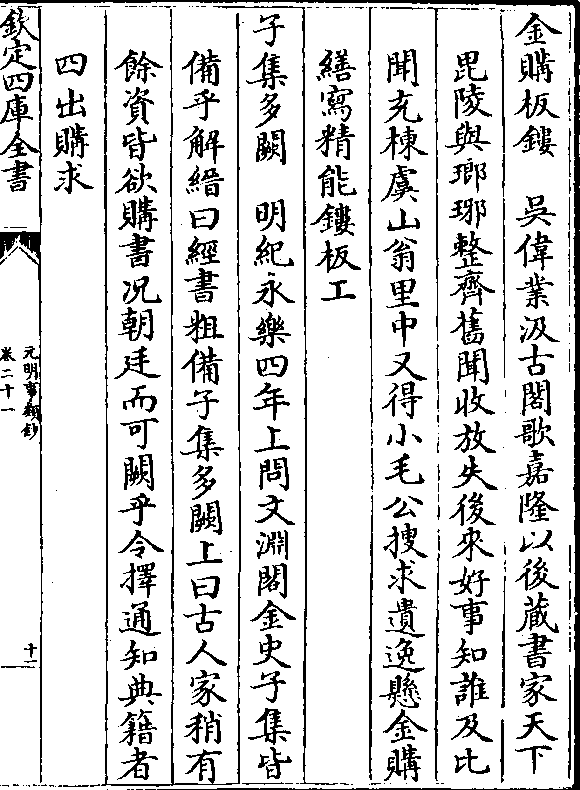 金購板鏤　吳偉業汲古閣歌嘉隆以後藏書家天下
毘陵與瑯琊整齊舊聞收放失後來好事知誰及比
聞充棟虞山翁里中又得小毛公搜求遺逸懸金購
繕寫精能鏤板工
子集多闕　明紀永樂四年上問文淵閣金史子集皆
備乎解縉曰經書粗備子集多闕上曰古人家稍有
餘資皆欲購書况朝廷而可闕乎令擇通知典籍者
四出購求
欽定四庫全書
元明事類鈔
卷二十一
十一